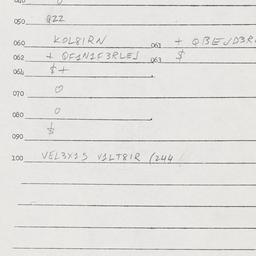 050 922
060 KOL8IRN 061 + QBEUD3R
062 + QF1N1F3RLEJ 063 $
064 $+
070 O
080 O
$
090
100 VEL3X1S V1LT8IR (244